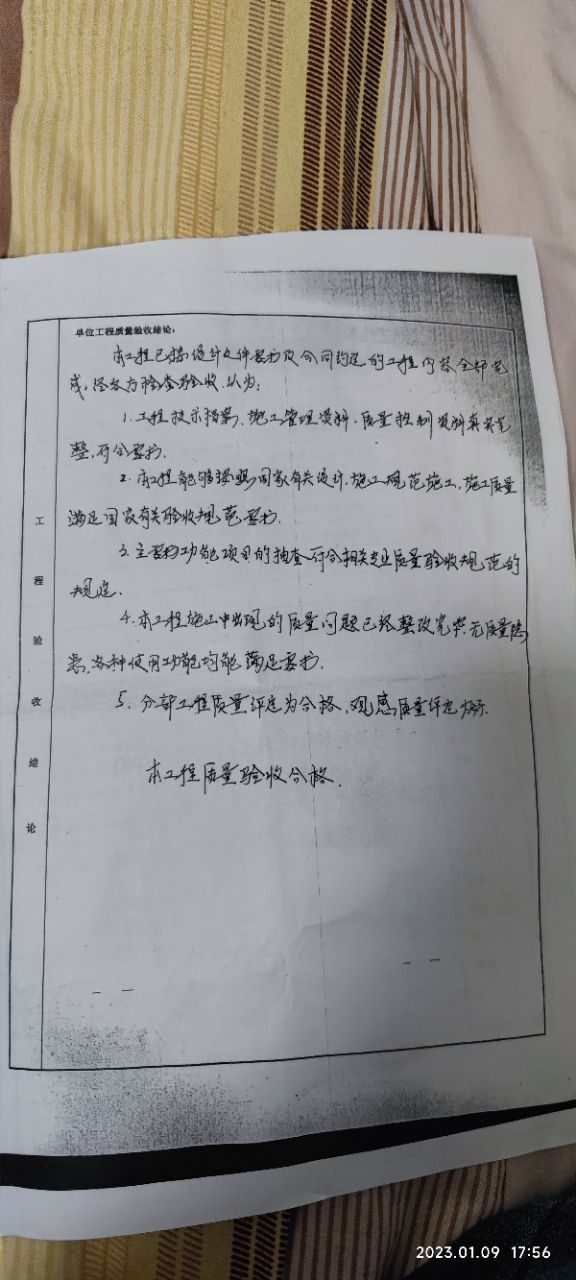 单位工程质量验收结论：
本工程已按设计文件要求及合同约定的工程内容全部完
成，经各方检查验收，认为：
1. 工程技术档案、施工管理资料、质量控制资料真实完
整，符合要求．
2. 本工程能够按照国家有关设计、施工规范施工，施工质量
满足国家有关验收规范要求．
3. 主要功能项目的抽查符合相关专业质量验收规范的
规定．
4. 本工程施工中出现的质量问题已经整改完毕，无质量隐
患，各种使用功能均能满足要求．
5. 分部工程质量评定为合格，观感质量评定为
本工程质量验收合格．
工程验收结论
2023.01.09 17:56